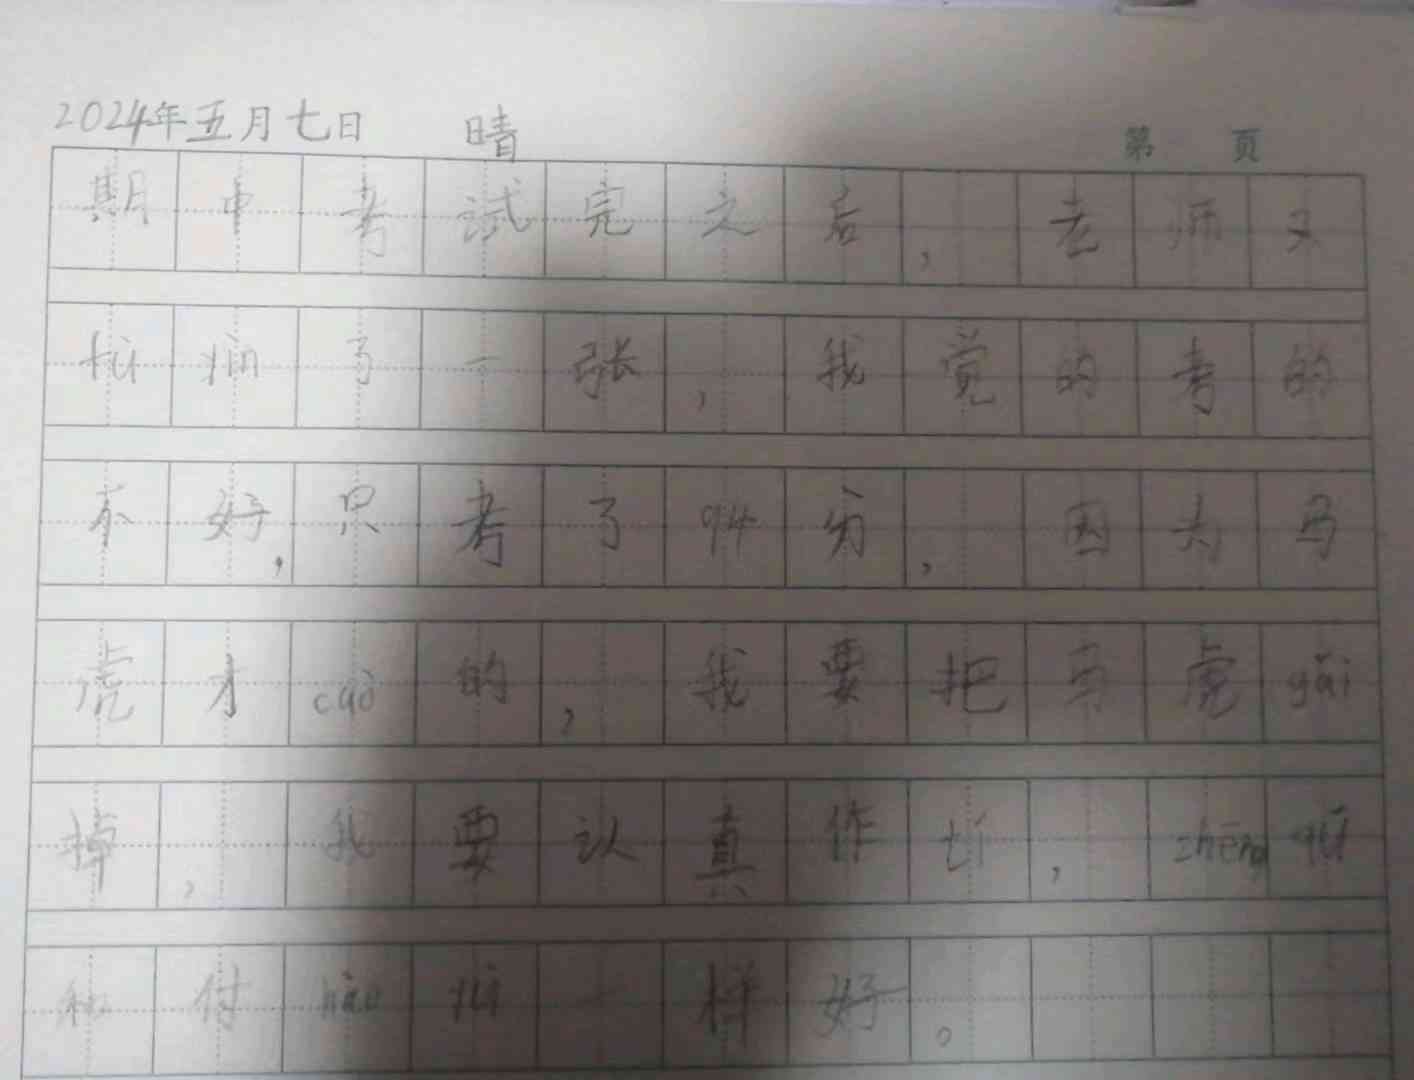 2024年五月七日 晴
第 页
期中考试完之后,老师又
tū 了一张,我觉的考的
不好,只考了94分,因为马
虎才cuò的,我要把马虎gǎi
掉,我要认真作tí,zhēng qǔ
和付hào yǔ一样好。